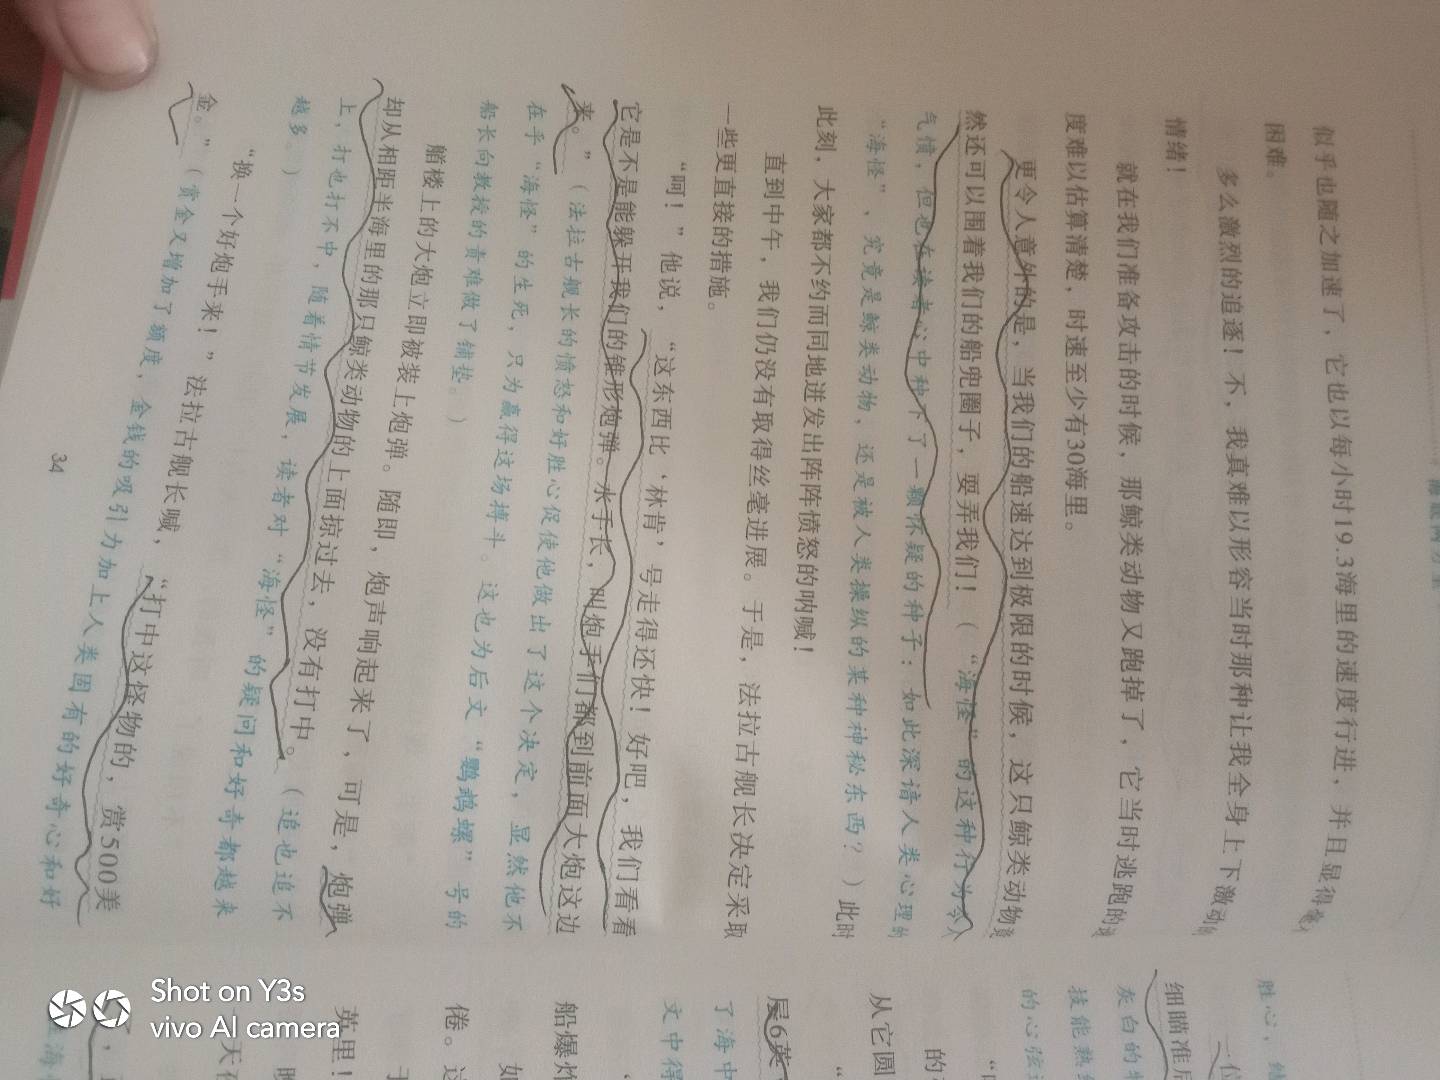 似乎也随之加速了，它也以每小时19.3海里的速度行进，并且显得毫
困难。
多么激烈的追逐！不，我真难以形容当时那种让我全身上下激动的
情绪！
就在我们准备攻击的时候，那鲸类动物又跑掉了，它当时逃跑的速
度难以估算清楚，时速至少有30海里。
更令人意外的是，当我们的船速达到极限的时候，这只鲸类动物竟
然还可以围着我们的船兜圈子，耍弄我们！（“海怪”的这种行为令人
气愤，但也在读者心中种下了一颗怀疑的种子：如此深谙人类心理的
“海怪”，究竟是鲸类动物，还是被人类操纵的某种神秘东西？）此时
此刻，大家都不约而同地迸发出阵阵愤怒的呐喊！
直到中午，我们仍没有取得丝毫进展。于是，法拉古舰长决定采取
一些更直接的措施。
“呵！”他说，“这东西比‘林肯’号走得还快！好吧，我们看看
它是不是能躲开我们的锥形炮弹。水手长，叫炮手们都到前面大炮这边
来。”（法拉古舰长的愤怒和好胜心促使他做出了这个决定，显然他不
在乎“海怪”的生死，只为赢得这场搏斗。这也为后文“鹦鹉螺”号的
船长向教授的责难做了铺垫。）
艏楼上的大炮立即被装上炮弹。随即，炮声响起来了，可是，炮弹
却从相距半海里的那只鲸类动物的上面掠过去，没有打中。（追也追不
上，打也打不中，随着情节发展，读者对“海怪”的疑问和好奇都越来
越多）
“换一个好炮手来！”法拉古舰长喊，“打中这怪物的，赏500美
金。”（赏金又增加了额度，金钱的吸引力加上人类固有的好奇心和好
34
胜心，
一位
细瞄准后
灰白的
技能熟
的心弦
的
从它圆
层6英
了海中
文中得
船爆炸
如
倦。这
于
英里！
晚
天
Shot on Y3s
vivo AI camera